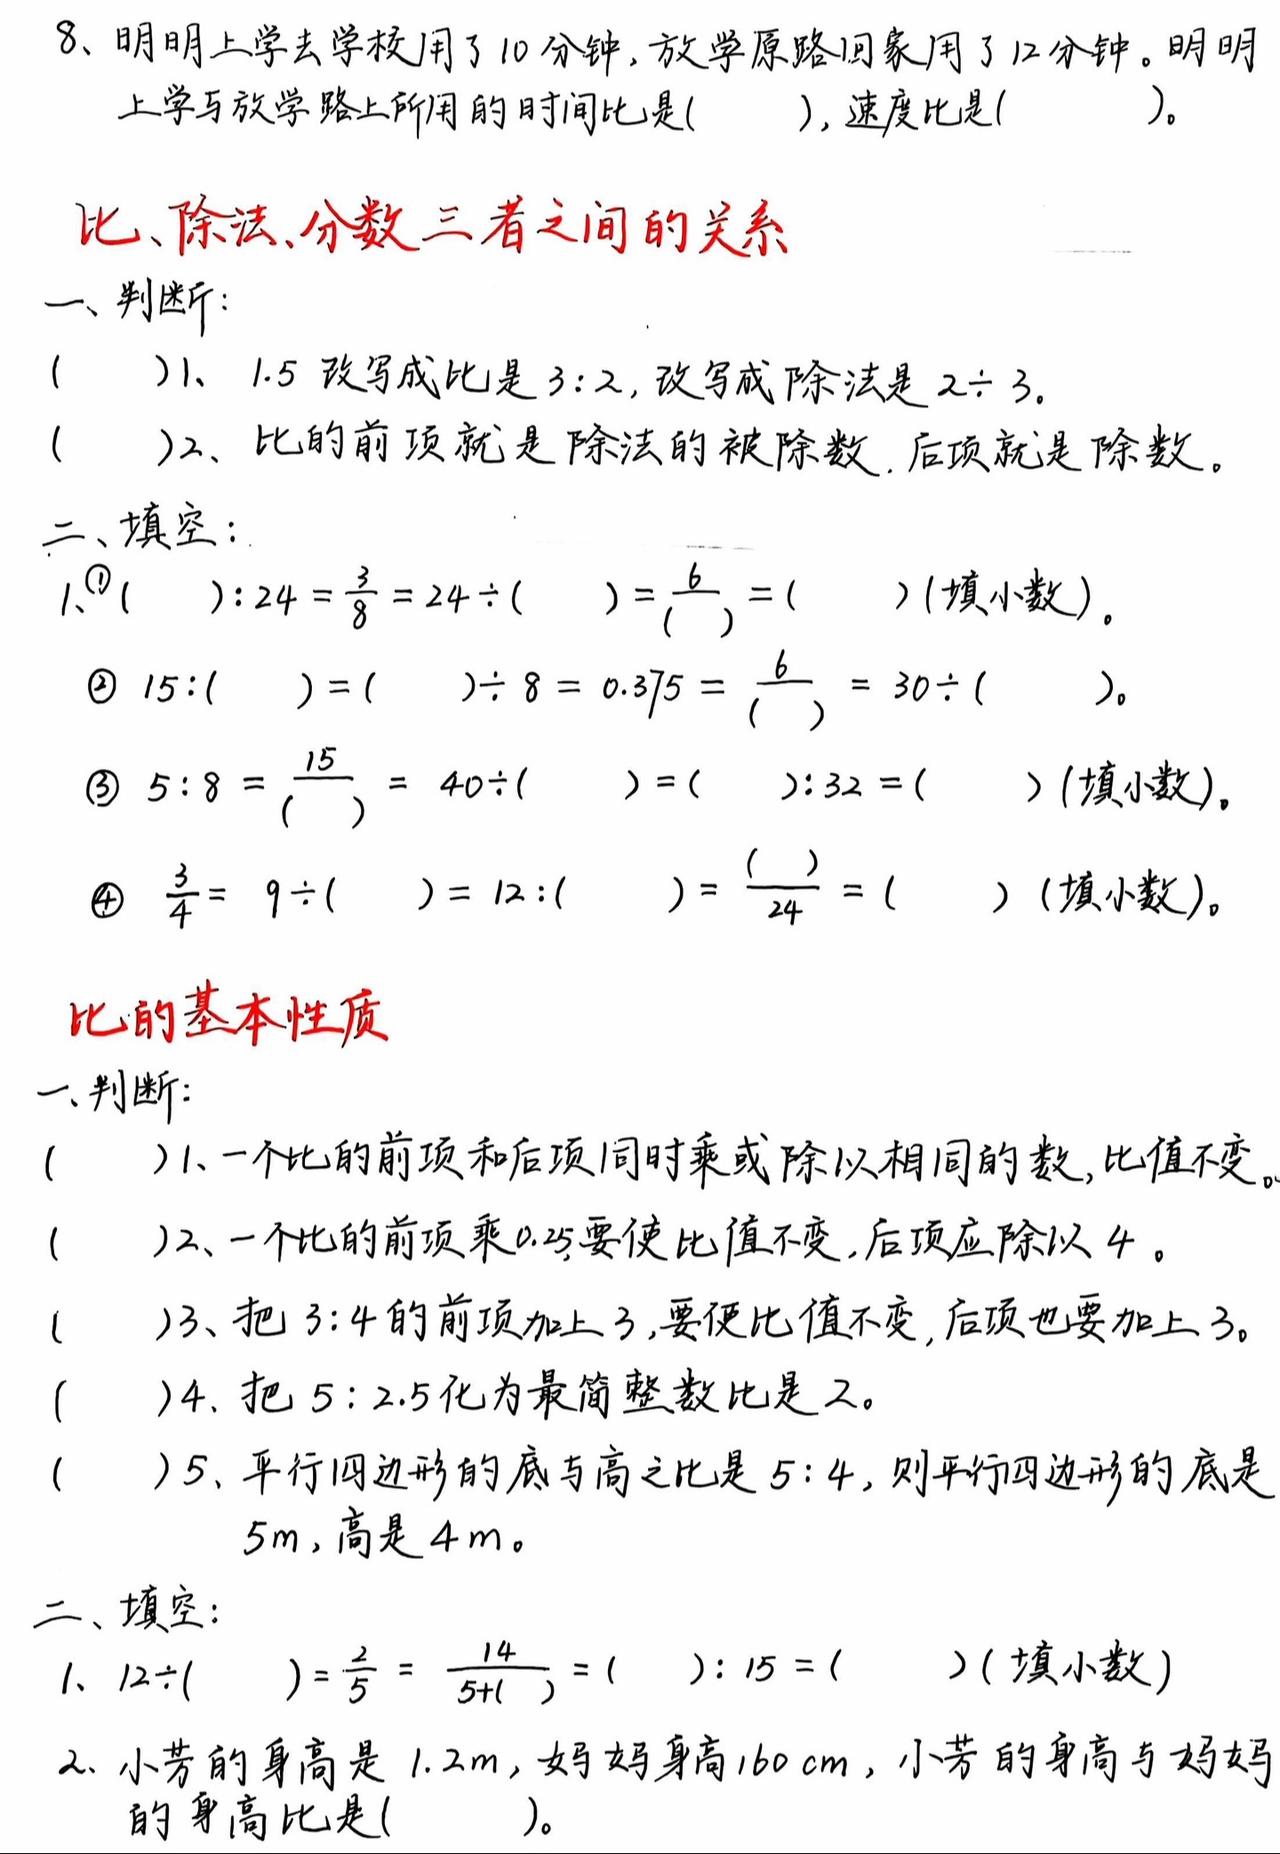 8、明明上学去学校用了10分钟,放学原路回家用了12分钟。明明
上学与放学路上所用的时间比是(    ),速度比是(    )。
比、除法、分数三者之间的关系
一、判断:
(    )1、1.5改写成比是3:2,改写成除法是2÷3。
(    )2、比的前项就是除法的被除数.后项就是除数。
二、填空:
1、①(    ):24=3/8=24÷(    )=6/(  )=(    )(填小数)。
②15:(    )=(    )÷8=0.375=6/(  )=30÷(    )。
③5:8=15/(  )=40÷(    )=(    ):32=(    )(填小数)。
④3/4=9÷(    )=12:(    )=(  )/24=(    )(填小数)。
比的基本性质
一.判断:
(    )1、一个比的前项和后项同时乘或除以相同的数,比值不变。
(    )2、一个比的前项乘0.25,要使比值不变,后项应除以4。
(    )3、把3:4的前项加上3,要使比值不变,后项也要加上3。
(    )4、把5:2.5化为最简整数比是2。
(    )5、平行四边形的底与高之比是5:4,则平行四边形的底是
5m,高是4m。
二、填空:
1、12÷(    )=2/5=14/5+(  )=(    ):15=(    )(填小数)
2、小芳的身高是1.2m,妈妈身高160cm,小芳的身高与妈妈
的身高比是(    )。